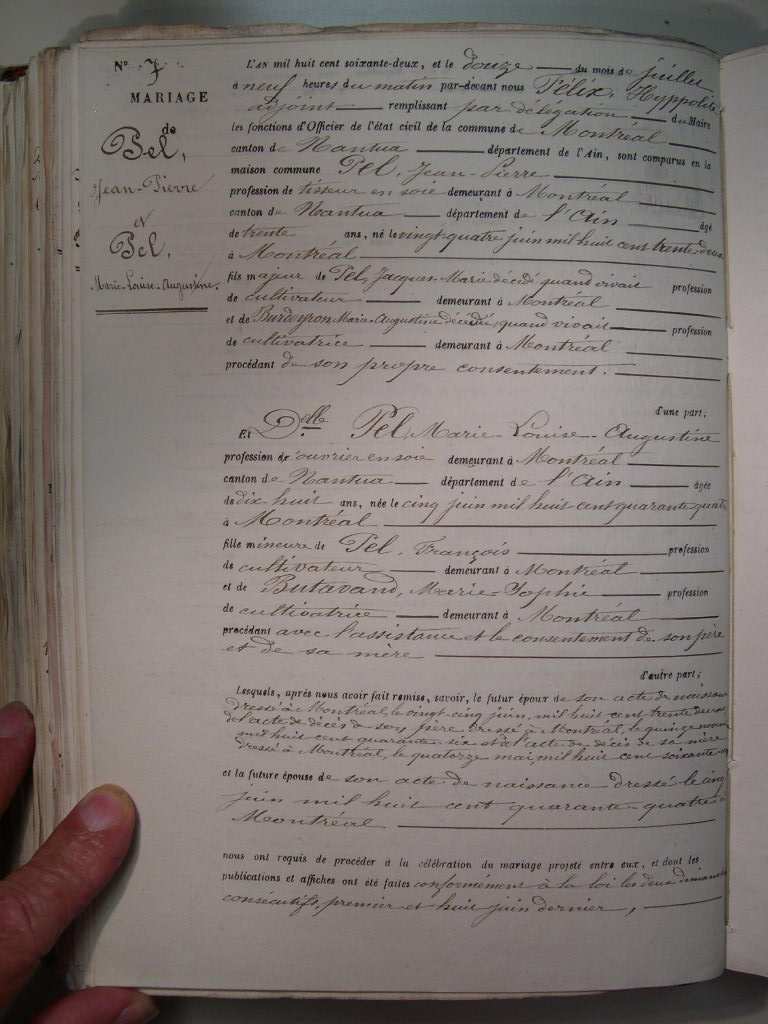 N° 7
MARIAGE
de
Pel,
Jean-Pierre
et
Pel,
Marie-Louise-Augustine.
L'AN mil huit cent soixante-deux, et le douze du mois de juillet
à neuf heures du matin par-devant nous Félix, Hyppolite
adjoint remplissant par délégation du Maire
les fonctions d'Officier de l'état civil de la commune de Montréal
canton de Nantua département de l'Ain, sont comparus en la
maison commune Pel, Jean-Pierre
profession de tisseur en soie demeurant à Montréal
canton de Nantua département de l'Ain âgé
de trente ans, né le vingt-quatre juin mil huit cent trente-deux
à Montréal
fils majeur de Pel, Jacques-Marie décédé quand vivait profession
de cultivateur demeurant à Montréal
et de Burdeyron Marie-Augustine décédée, quand vivait profession
de cultivatrice demeurant à Montréal
procédant de son propre consentement.
d'une part;
Et Delle Pel, Marie-Louise-Augustine
profession de ouvrier en soie demeurant à Montréal
canton de Nantua département de l'Ain âgée
de dix huit ans, née le cinq juin mil huit cent quarante quatre
à Montréal
fille mineure de Pel, François profession
de cultivateur demeurant à Montréal
et de Butavand, Marie-Sophie profession
de cultivatrice demeurant à Montréal
procédant avec l'assistance et le consentement de son père
et de sa mère
d'autre part;
Lesquels, après nous avoir fait remise, savoir, le futur époux de son acte de naissance
dressé à Montréal, le vingt-cinq juin, mil huit cent trente deux
de l'acte de décès de son père dressé à Montréal, le quinze
mil huit cent quarante-six et de l'acte de décès de sa mère
dressé à Montréal, le quatorze mai, mil huit cent soixante
et la future épouse de son acte de naissance dressé le cinq
juin mil huit cent quarante-quatre à
Montréal
nous ont requis de procéder à la célébration du mariage projeté entre eux, et dont les
publications et affiches ont été faites conformément à la loi les deux dimanches
consécutifs, premier et huit juin dernier,